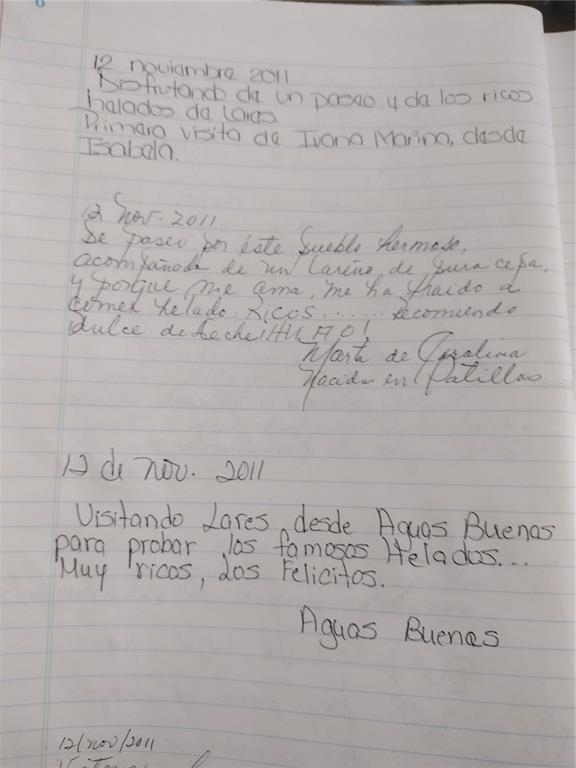 12 noviembre 2011
Disfrutando de un paseo y de los ricos
helados de Lares
Primera visita de Ivana Marina, desde
Isabela.
12 Nov. 2011
De paseo por éste pueblo hermoso,
acompañada de un Lareño de pura cepa,
y porque me ama, me ha traido a
comer helado. Ricos...... recomiendo
dulce de leche! HUAO!
Marta de Carolina
Nacida en Patillas
12 de nov. 2011
Visitando Lares desde Aguas Buenas
para probar los famosos Helados...
Muy ricos, Los Felicitos.
Aguas Buenas
12/nov/2011